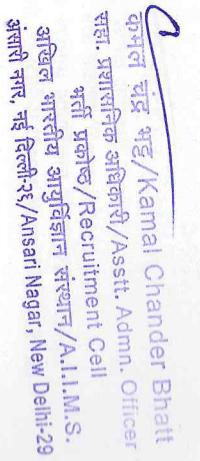 कमल चंद्र भट्ट/Kamal Chander Bhatt
सहा. प्रशासनिक अधिकारी/Asstt. Admn. Officer
भर्ती प्रकोष्ठ/Recruitment Cell
अखिल भारतीय आयुर्विज्ञान संस्थान/A.I.I.M.S.
अंसारी नगर, नई दिल्ली-२९/Ansari Nagar, New Delhi-29